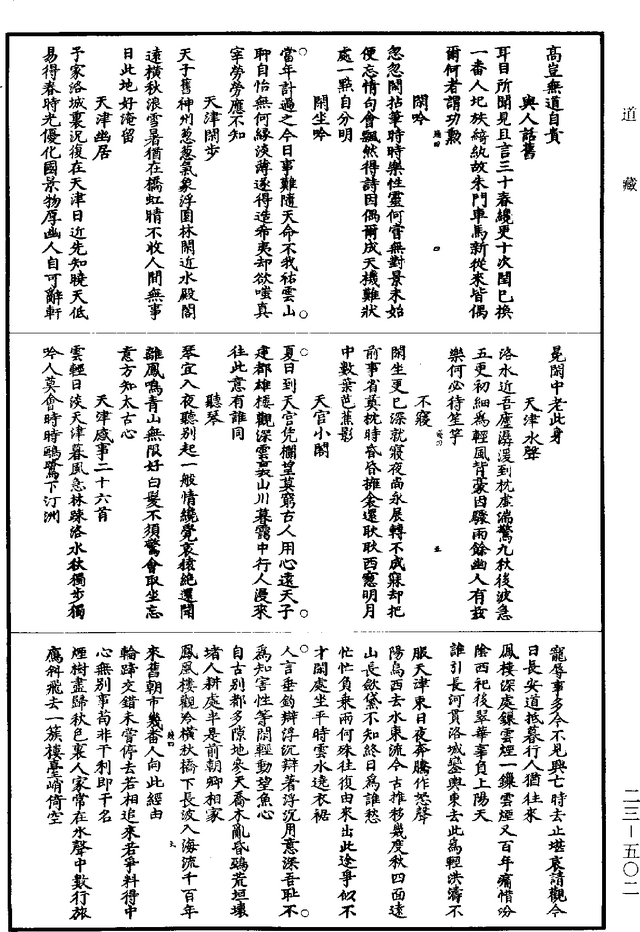 道藏
高豈無道自貴
與人話舊
耳目所聞見且言三十春纔更十次閏已換
一番人圮族綺紈故朱門車馬新從來皆偶
爾何者謂功勲
閑吟
忽忽閑拈筆時時樂性靈何嘗無對景未始
便忘情句會飄然得詩因偶爾成天機難狀
處一點自分明
閑坐吟
當年計過之今日事難隨天命不我祐雲山
聊自怡無何緣淡薄遂得造希夷却欲嗤真
宰勞勞應不知
天津閑步
天子舊神州葱葱氣象浮園林閑近水殿閣
遠橫秋浪雲暑猶在橋虹晴不收人間無事
日此地好淹留
天津幽居
予家洛城裏况復在天津日近先知曉天低
易得春時光優化國景物厚幽人自可辭軒
冕閑中老此身
天津水聲
洛水近吾廬潺湲到枕虛湍驚九秋後波急
五更初細爲輕風背豪因驟雨餘幽人有兹
樂何必待笙竽
不寢
閑坐更已深就寢夜尚永展轉不成寐却把
前事省奠枕時昏昏擁衾還耿耿西窻明月
中數葉芭蕉影
天宫小閣
夏日到天宫凭欄望莫窮古人用心遠天子
建都雄樓觀深雲裏山川暮靄中行人漫來
往此意有誰同
聽琴
琴宜入夜聽別起一般情纔覺哀猿絶還聞
離鳳鳴青山無限好白髮不須驚會取坐忘
意方知太古心
天津感事二十六首
雲輕日淡天津暮風急林踈洛水秋獨步獨
吟人莫會時時鷗鷺下汀洲
寵辱事多今不見興亡時去止堪哀請觀今
日長安道抵暮行人猶往來
鳳樓深處鎖雲煙一鏁雲煙又百年痛惜汾
陰西祀後翠華辜負上陽天
誰引長河貫洛城鑾輿東去此爲輕洪濤不
服天津東日夜奔騰作怒聲
陽烏西去水東流今古推移幾度秋四面遠
山長歛黛不知終日爲誰愁
忙忙負乘兩何殊往復由來出此途爭似不
才閑處坐平時雲水遶衣裾
人言垂釣辯浮沉辯著浮沉用意深吾耻不
爲知害性等閑輕動望魚心
自古别都多隙地參天喬木亂昏鵶荒垣壞
堵人耕處半是前朝卿相家
鳳凰樓觀冷橫秋橋下長波入海流千百年
來舊朝市幾番人向此經由
輪蹄交錯未嘗停去若相追來若爭料得中
心無別事苟非干利即干名
煙樹盡歸秋色裏人家常在水聲中數行旅
鴈斜飛去一簇樓臺峭倚空
二三—五〇二